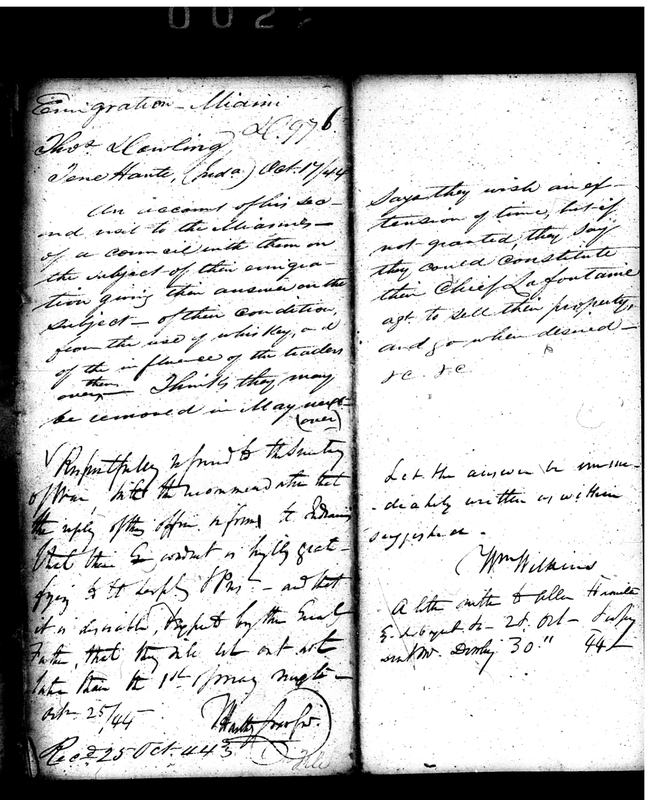 002
Emigration - Miami
D.976.
Thos Dowling
Terre Haute, (Inda) Oct. 17/44
An account of his sec-
ond visit to the Miamies -
of a council with them on
the subject of their emigra-
tion giving their answer on the
subject - of their condition,
from the use of whiskey, and
of the influence of the traders
over them - Thinks they may
be removed in May next -
(over)
Respectfully referred to the Secretary
of War, with the recommendation that
the reply of this office inform the Indians
that their conduct is highly grat-
ifying to the
it is desirable, by the Great
Father, that they set out not
later than the 1st of May next -
Octr 25/44
Rec'd 25 Oct. 44
File
Says they wish an ex-
tension of time, but if
not granted, they say
they could constitute
their Chief Lafontaine
agt. to sell their property,
and go when desired -
&c. &c
Let the answer be imme-
-diately written as within
suggested.
Wm Wilkins
A letter written to Allen Hamilton
28. Oct -
sent Mr. Dowling 30 " 44 -